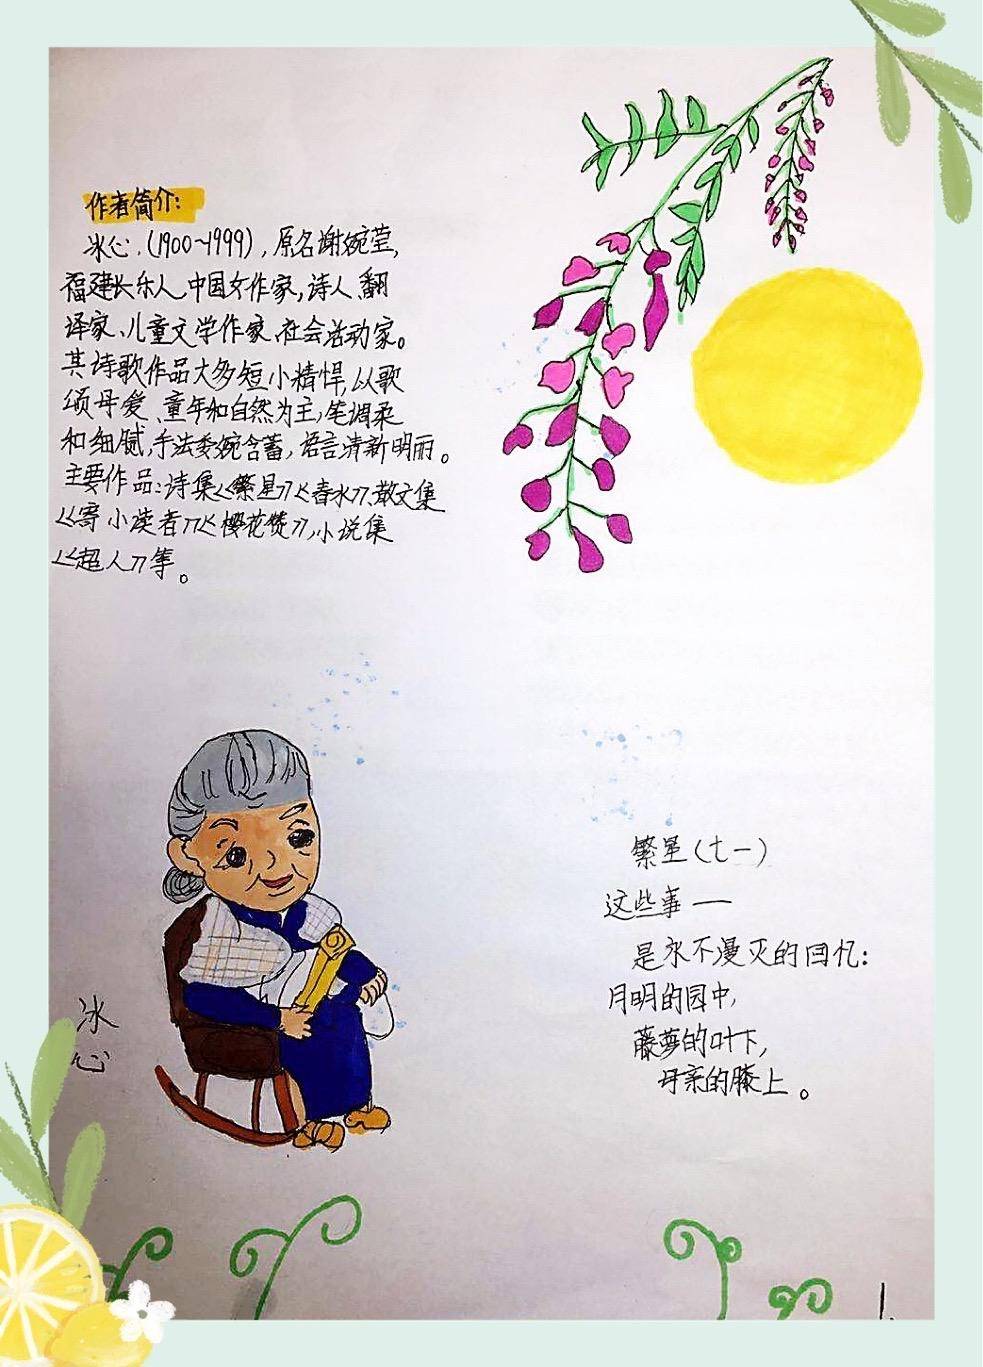 作者简介:
冰心.(1900~1999),原名谢婉莹,
福建长乐人,中国女作家,诗人、翻
译家、儿童文学作家、社会活动家。
其诗歌作品大多短小精悍,以歌
颂母爱、童年和自然为主,笔调柔
和细腻,手法委婉含蓄,语言清新明丽。
主要作品:诗集《繁星》《春水》、散文集
《寄小读者》《樱花赞》,小说集
《超人》等。
冰
心
繁星(七一)
这些事—
是永不漫灭的回忆:
月明的园中,
藤萝的叶下,
母亲的膝上。